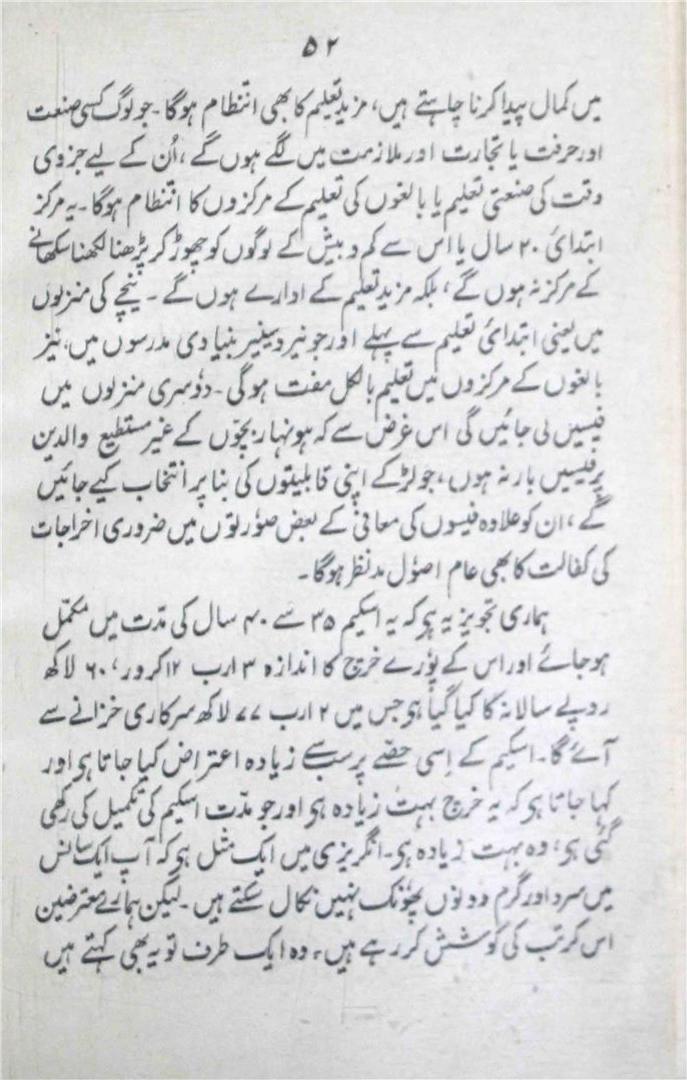 ۵۲
میں کمال پیدا کرنا چاہتے ہیں، مزید تعلیم کا بھی انتظام ہوگا۔ جو لوگ کسی صنعت
اور حرفت یا تجارت اور ملازمت میں لگے ہوں گے، اُن کے لیے جزوی
وقت کی صنعتی تعلیم یا بالغوں کی تعلیم کے مرکزوں کا انتظام ہوگا۔ یہ مرکز
ابتدائی ۲۰ سال یا اس سے کم و بیش کے لوگوں کو چھوڑ کر پڑھنا لکھنا سکھانے
کے مرکز نہ ہوں گے، بلکہ مزید تعلیم کے ادارے ہوں گے۔ نیچے کی منزلوں
میں یعنی ابتدائی تعلیم سے پہلے اور جونیر و سینیر بنیادی مدرسوں میں، نیز
بالغوں کے مرکزوں میں تعلیم بالکل مفت ہوگی۔ دوسری منزلوں میں
فیسیں لی جائیں گی اس غرض سے کہ ہونہار بچّوں کے غیر مستطیع والدین
پر فیسیں بار نہ ہوں، جو لڑکے اپنی قابلیتوں کی بنا پر انتخاب کیے جائیں
گے، ان کو علاوہ فیسوں کی معافی کے بعض صورتوں میں ضروری اخراجات
کی کفالت کا بھی عام اصول مدنظر ہوگا۔
ہماری تجویز یہ ہو کہ یہ اسکیم ۳۵ سے ۴۰ سال کی مدّت میں مکمّل
ہو جائے اور اس کے پورے خرچ کا اندازہ ۳ ارب ۱۲ کرور، ۶۰ لاکھ
روپے سالانہ کا کیا گیا ہو جس میں ۲ ارب ۷۷ لاکھ سرکاری خزانے سے
آئے گا۔ اسکیم کے اِسی حصّے پر سب سے زیادہ اعتراض کیا جاتا ہو اور
کہا جاتا ہو کہ یہ خرچ بہت زیادہ ہو اور جو مدّت اسکیم کی تکمیل کی رکھی
گئی ہو، وہ بہت زیادہ ہو۔ انگریزی میں ایک مثل ہو کہ آپ ایک سانس
میں سرد اور گرم دونوں پھونک نہیں نکال سکتے ہیں۔ لیکن ہمارے معترضین
اس کرتب کی کوشش کر رہے ہیں۔ وہ ایک طرف تو یہ بھی کہتے ہیں